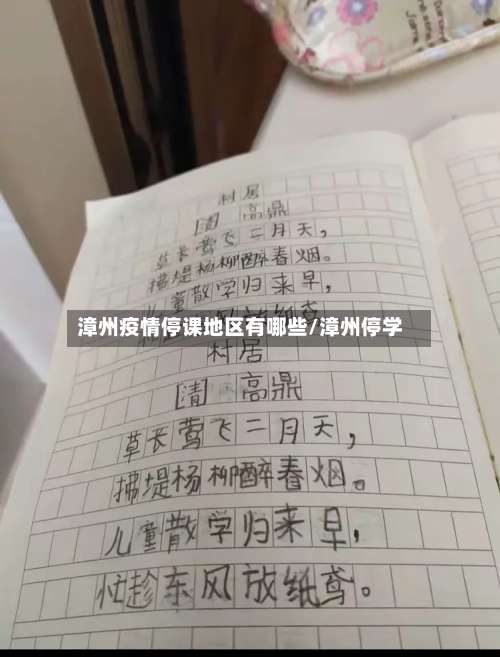 村居
[清] 高鼎
草长莺飞二月天，
拂堤杨柳醉春烟。
童散学归来早，
漳州疫情停课地区有哪些/漳州停学
村居
[清] 高鼎
草长莺飞二月天，
拂堤杨柳醉春烟。
儿童散学归来早，
忙趁东风放纸鸢。